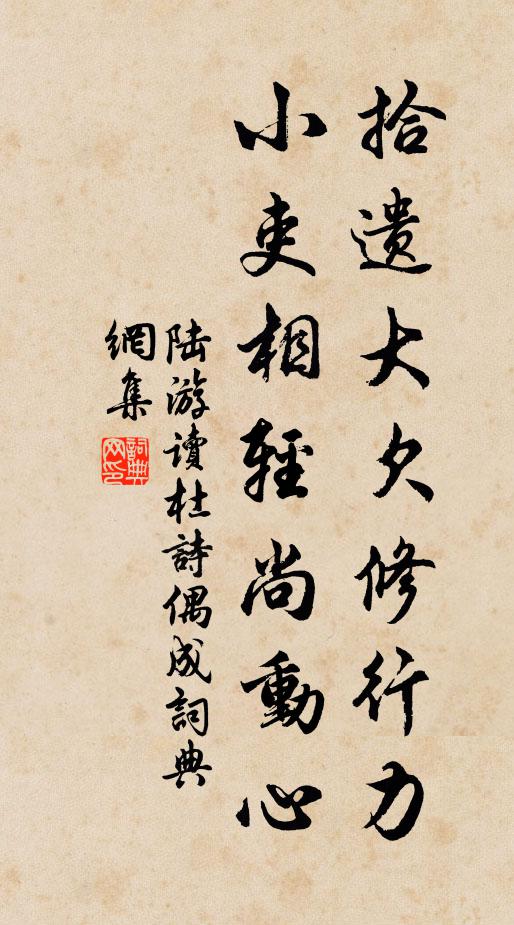 拾遗大欠修行力
小吏相輕尚動心
陆游讀杜詩偶成詞典
網集
詞典
网印